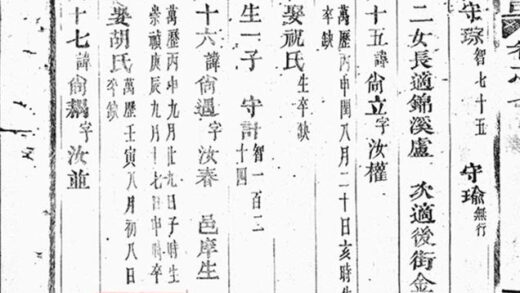 守琮 智七十五 守瑜 無行
二女長適錦溪盧 次適後街金
十五諱尙立字汝權
萬歷丙申閏八月二十日亥時生
卒缺
娶祝氏 生卒缺
生一子 守計 智一百二
十四
十六諱尙遇字汝春 邑庠生
萬歷丙申九月廿九日子時生
崇禎庚辰九月十七日申時卒
娶胡氏 萬歷壬寅八月初八日
卒缺
十七諱尙字汝並